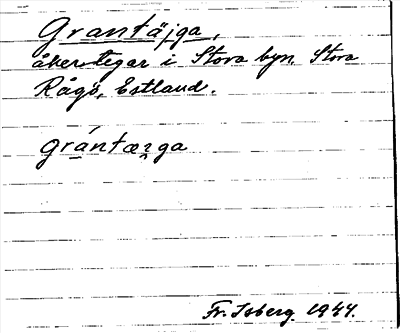 Grantäjga,
åkertegar i Stora byn, Stora
Rågö, Estland.
grántæꝛga
Fr. Isberg. 1944.